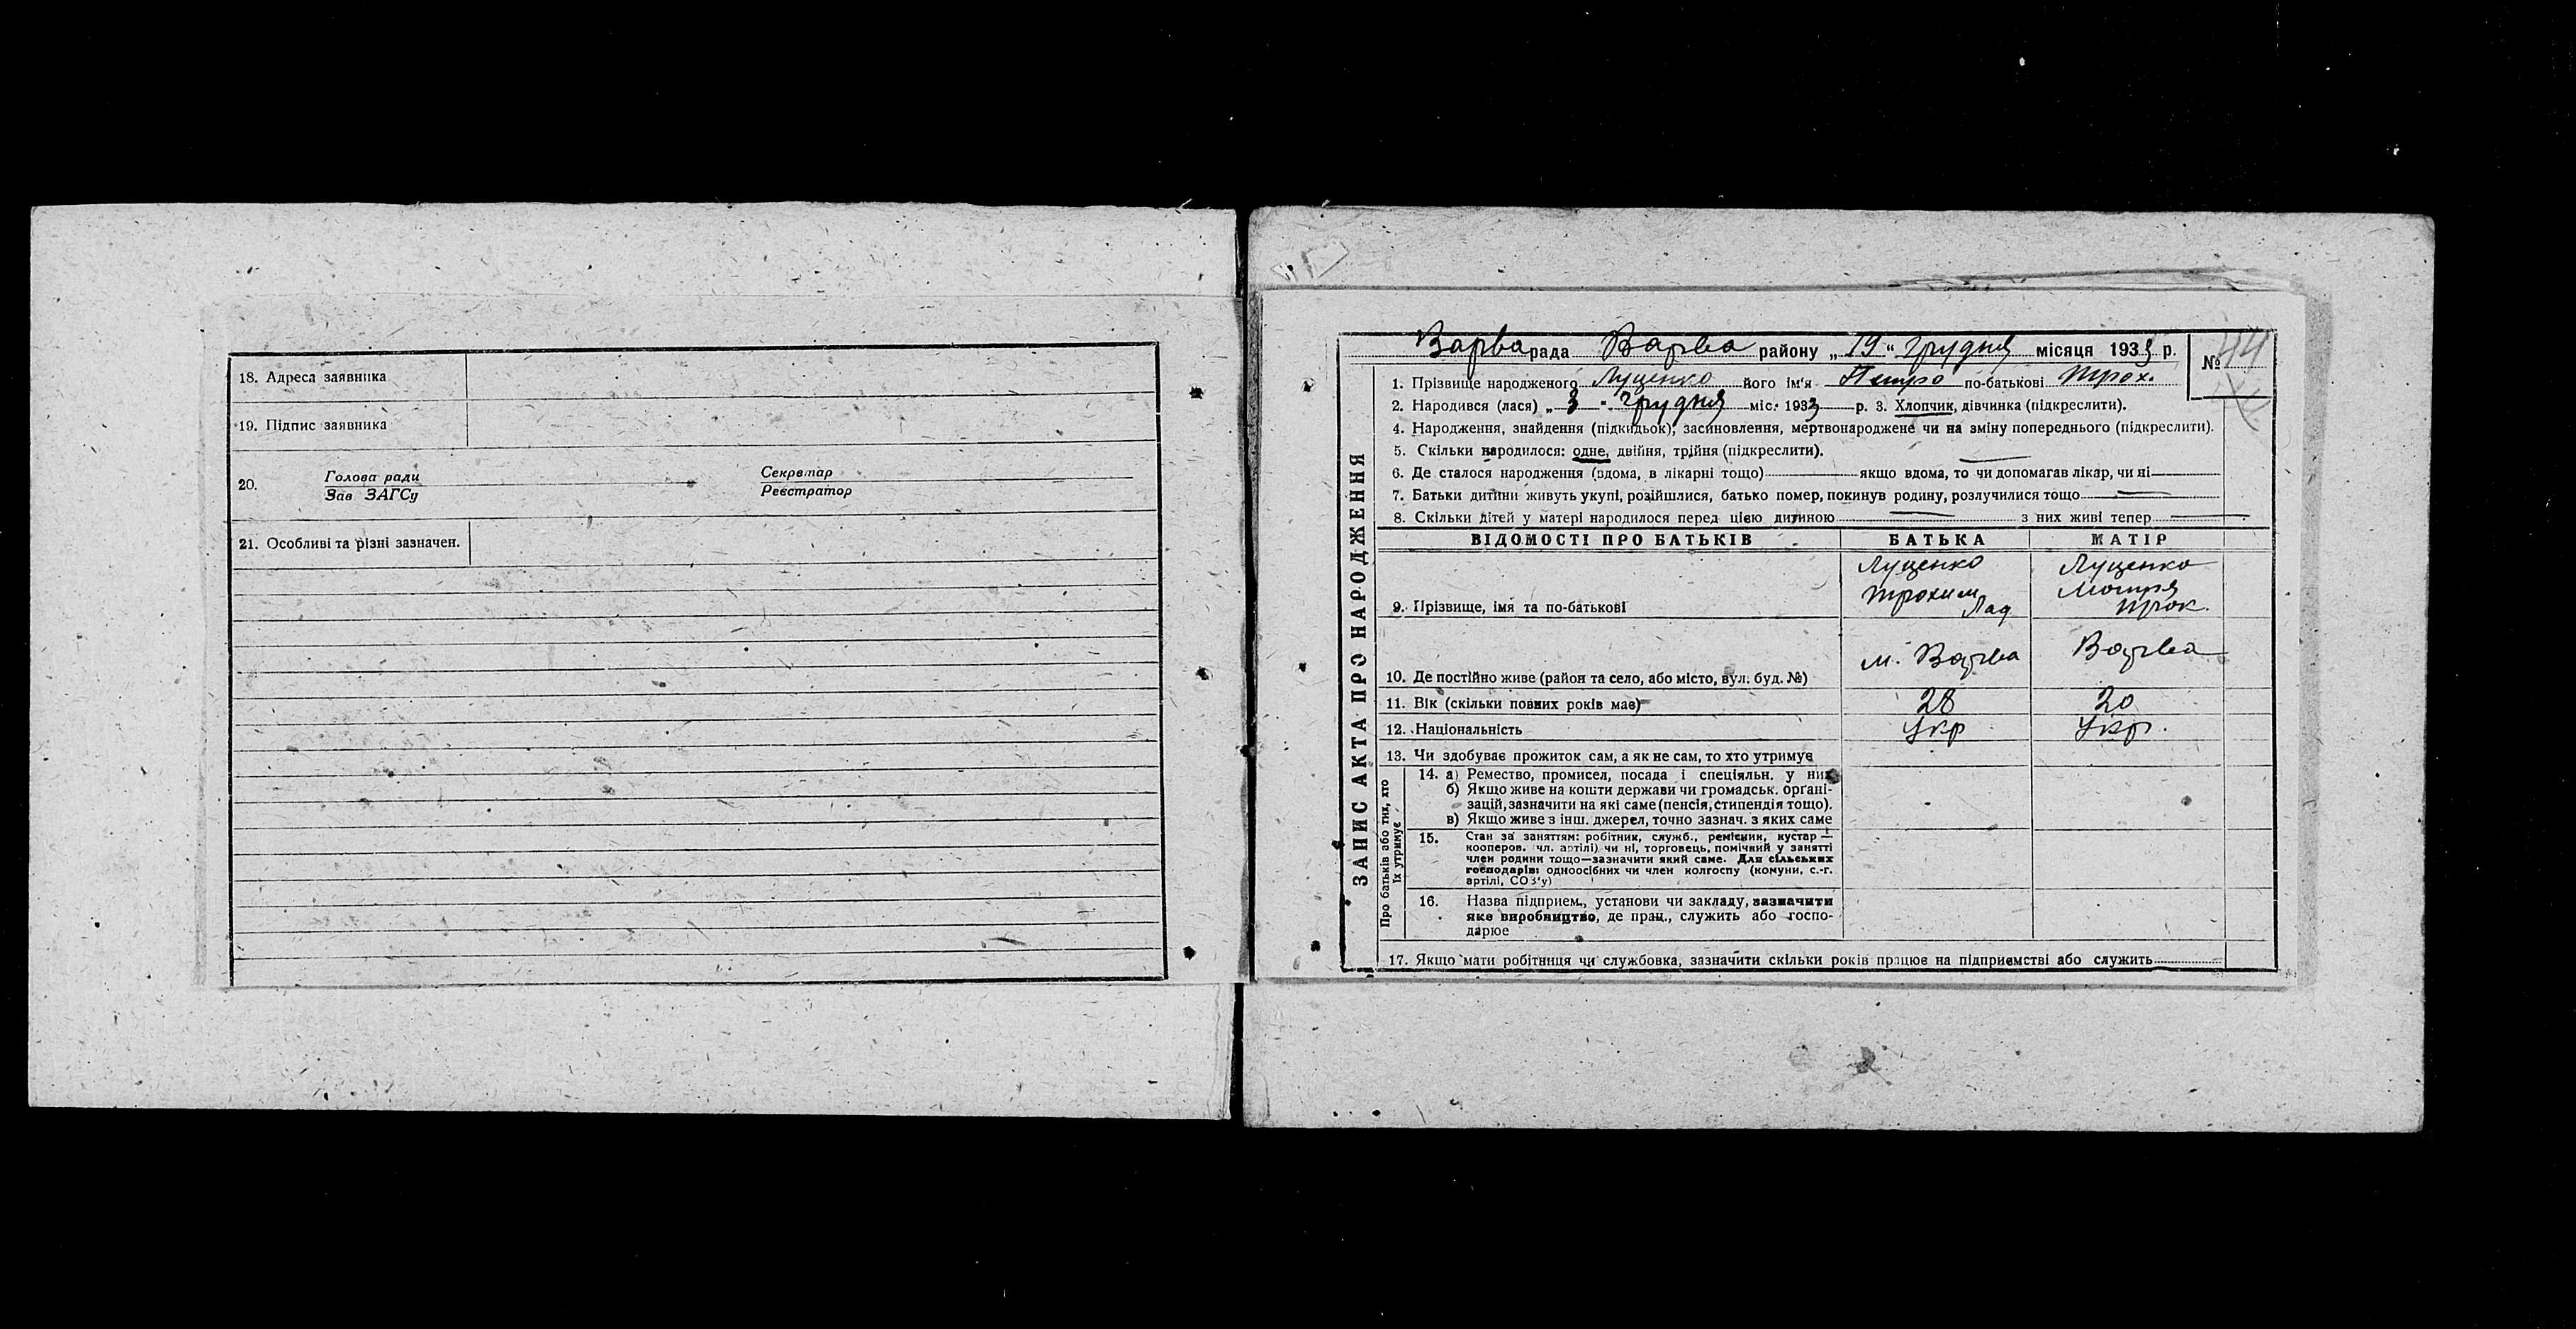 18. Адреса заявника
19. Підпис заявника
20. Голова ради Секретар
Зав ЗАГСу Реєстратор
21. Особливі та різні зазначен.
ЗАПИС АКТА ПРО НАРОДЖЕННЯ
Варва рада Варва району „19“ грудня місяця 1933 р.
№ 44
1. Прізвище народженого Луценко його ім'я Петро по-батькові Трох.
2. Народився (лася) „3“ грудня міс. 1933 р. 3. Хлопчик, дівчинка (підкреслити).
4. Народження, знайдення (підкидьок), засиновлення, мертвонароджене чи на зміну попереднього (підкреслити).
5. Скільки народилося: одне, двійня, трійня (підкреслити).
6. Де сталося народження (вдома, в лікарні тощо) — якщо вдома, то чи допомагав лікар, чи ні
7. Батьки дитини живуть укупі, розійшлися, батько помер, покинув родину, розлучилися тощо —
8. Скільки дітей у матері народилося перед цією дитиною — з них живі тепер —
ВІДОМОСТІ ПРО БАТЬКІВ БАТЬКА МАТІР
Луценко Луценко
Трохим Мотря
9. Прізвище, імя та по-батькові Лад Прок.
м. Варва Варва
10. Де постійно живе (район та село, або місто, вул. буд. №)
11. Вік (скільки повних років має) 28 20
12. Національність Укр Укр.
13. Чи здобуває прожиток сам, а як не сам, то хто утримує
Про батьків або тих, хто
їх утримує
14. а) Ремество, промисел, посада і спеціяльн. у них
б) Якщо живе на кошти держави чи громадськ. орґані-
зацій, зазначити на які саме (пенсія, стипендія тощо).
в) Якщо живе з інш. джерел, точно зазнач. з яких саме
15. Стан за заняттям: робітник, служб., ремісник, кустар —
кооперов. чл. артілі) чи ні, торговець, помічний у занятті
член родини тощо—зазначити який саме. Для сільських
господарів: одноосібних чи член колгоспу (комуни, с.-г.
артілі, СОЗ'у)
16. Назва підприєм., установи чи закладу, зазначити
яке виробництво, де прац., служить або госпо-
дарює
17. Якщо мати робітниця чи службовка, зазначити скільки років працює на підприємстві або служить